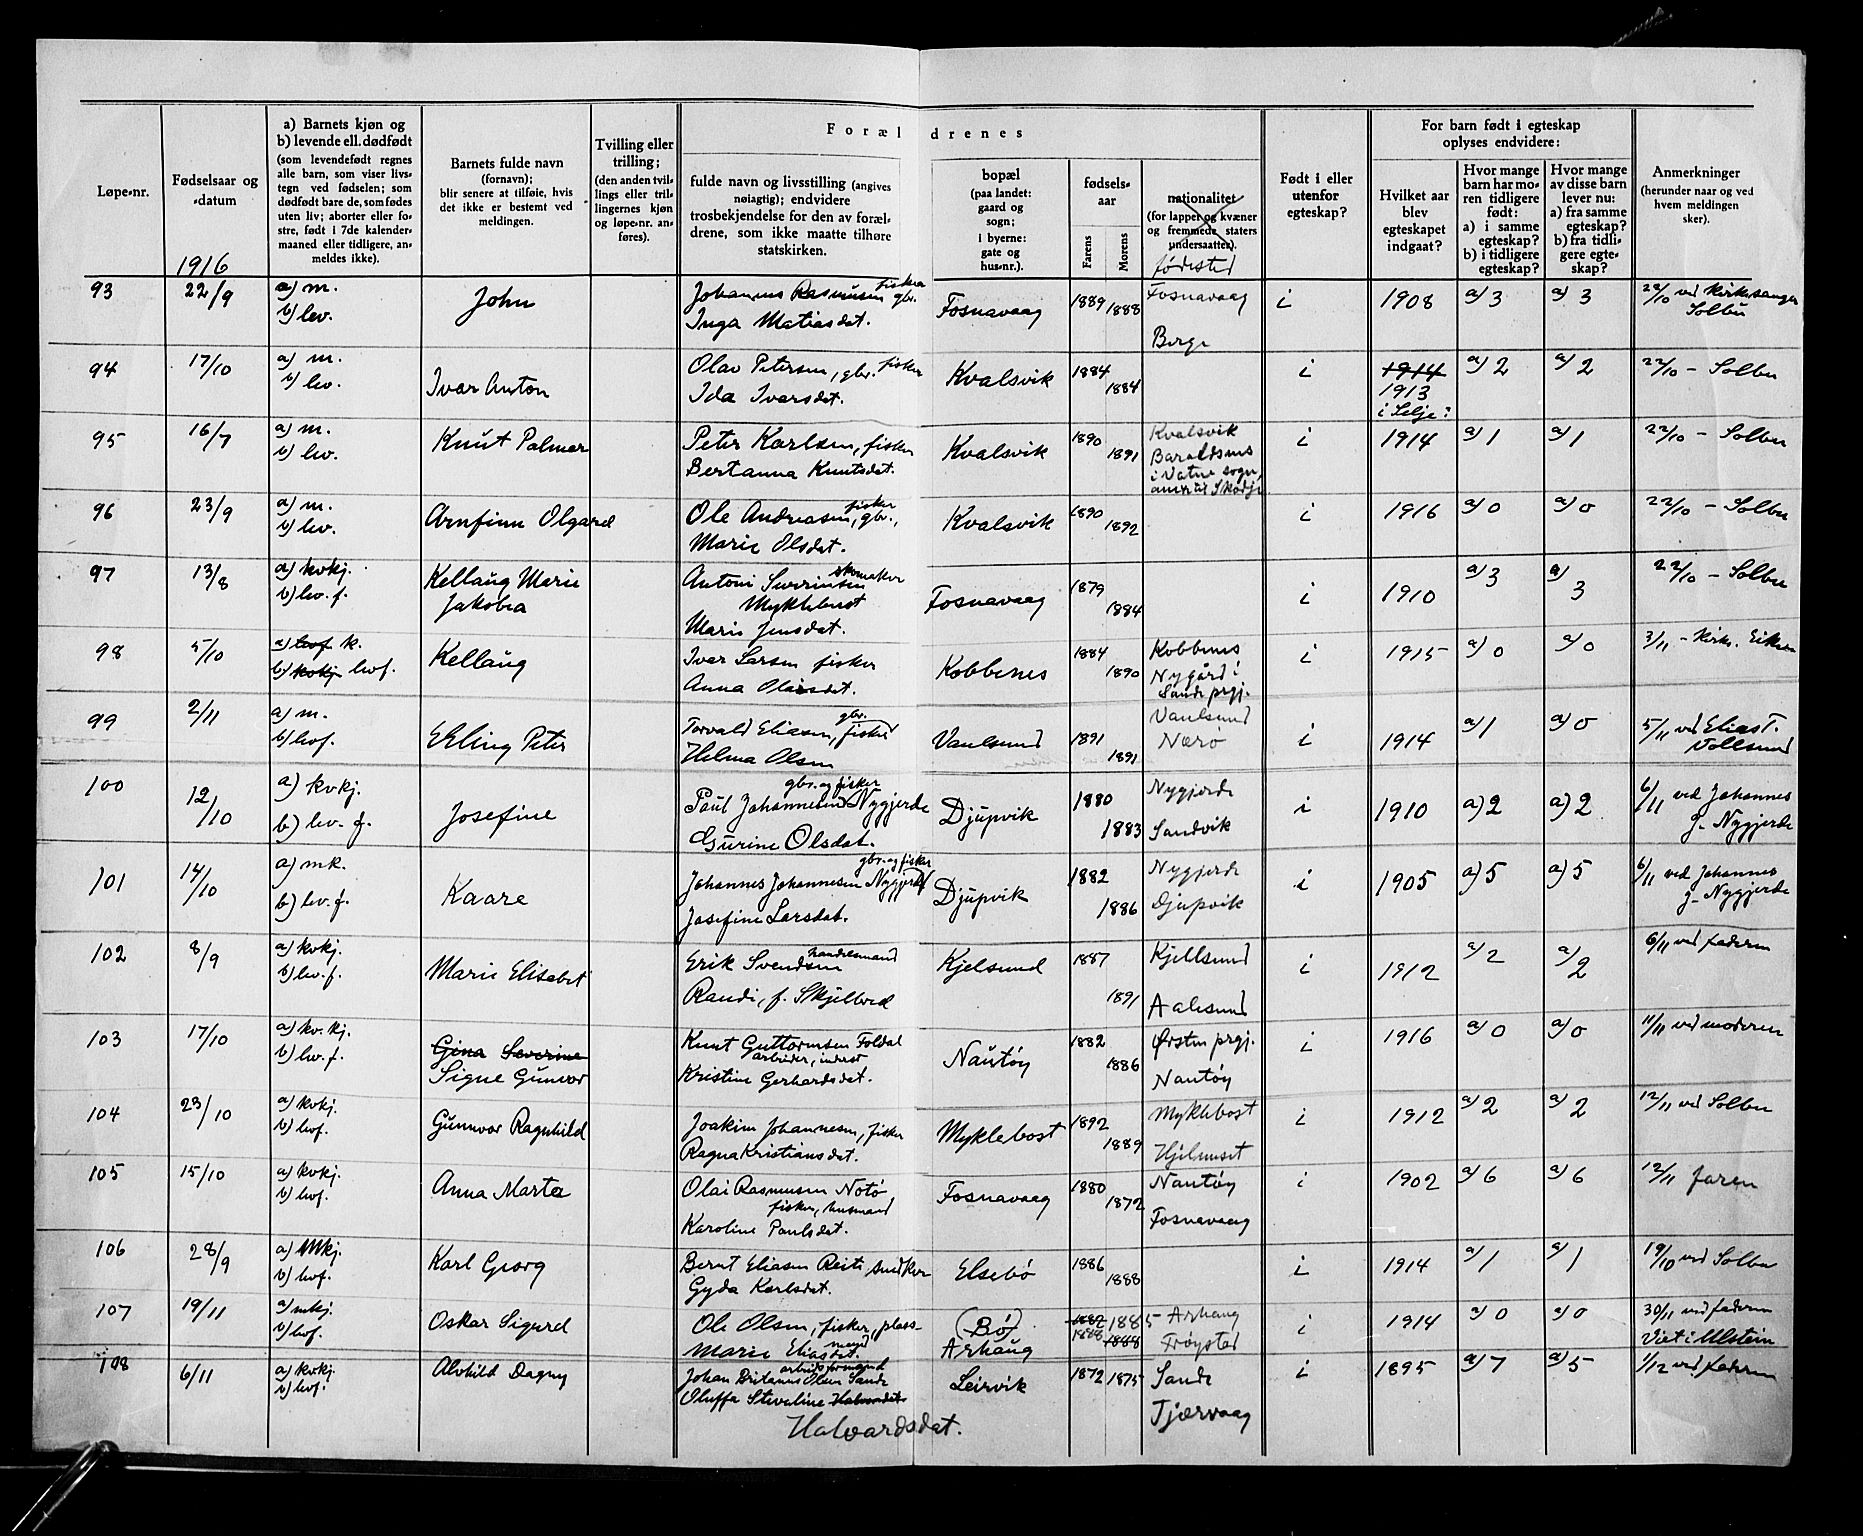 Forældrenes
For barn født i egteskap
oplyses endvidere:
Løpe-nr.
Fødselsaar og
-datum
1916
a) Barnets kjøn og
b) levende ell. dødfødt
(som levendefødt regnes
alle barn, som viser livs-
tegn ved fødselen; som
dødfødt bare de, som fødes
uten liv; aborter eller fo-
stre, født i 7de kalender-
maaned eller tidligere, an-
meldes ikke).
Barnets fulde navn
(fornavn);
blir senere at tilføie, hvis
det ikke er bestemt ved
meldingen.
Tvilling eller
trilling;
(den anden tvil-
lings eller tril-
lingernes kjøn
og løpe-nr. an-
føres).
fulde navn og livsstilling (angives
nøiagtig); endvidere
trosbekjendelse for den av foræl-
drene, som ikke maatte tilhøre
statskirken.
bopæl
(paa landet:
gaard og
sogn;
i byerne:
gate og
hus-nr.).
fødsels-
aar
Farens
Morens
nationalitet
(for lapper og kvæner
og fremmede staters
undersaatter).
fødested
Født i eller
utenfor
egteskap?
Hvilket aar
blev
egteskapet
indgaat?
Hvor mange
barn har mo-
ren tidligere
født:
a) i samme
egteskap?
b) i tidligere
egteskap?
Hvor mange
av disse barn
lever nu:
a) fra samme
egteskap?
b) fra tidli-
gere egte-
skap?
Anmerkninger
(herunder naar og ved
hvem meldingen
sker).
93 22/9 a) m. John Johannes Rasmusen fisker gbr. Fosnavaag 1889 1888 Fosnavaag i 1908 a) 3 a) 3 22/10 ved Kirkesanger
b) lev. Inga Matiasdat. Berge Solbu
94 17/10 a) m. Ivar Anton Olav Petersen, gbr. fisker Kvalsvik 1884 1884 i 1914 a) 2 a) 2 22/10 – Solbu
b) lev. Ida Ivarsdat. 1913
i Selje:
95 16/7 a) m. Knut Palmer Peter Karlsen, fisker Kvalsvik 1890 1891 Kvalsvik i 1914 a) 1 a) 1 22/10 – Solbu
b) lev. Bertanna Knutsdat. Baraldsnes
i Vatne sogn,
Skodje
96 23/9 a) m. Arnfinn Olgard Ole Andreasen, fisker gbr., Kvalsvik 1890 1892 i 1916 a) 0 a) 0 22/10 – Solbu
b) lev. Marie Olsdat.
97 13/8 a) kvkj. Kellaug Marie Antoni Severinsen skomaker Fosnavaag 1879 1884 i 1910 a) 3 a) 3 22/10 – Solbu
b) lev. f. Jakobea Myklebust
Maris Jensdat.
98 5/10 a) levf k. Kellaug Ivar Larsen fisker Kobbenes 1884 1890 Kobbenes i 1915 a) 0 a) 0 3/11 – Kirks. Eiksen
b) kvkj levf. Anna Olaisdat. Nygård i
Sande prgj.
99 2/11 a) m. Elling Peter Torvald Eliasen, gbr. fisker Vaulsund 1891 1891 Vaulsund i 1914 a) 1 a) 0 5/11 ved Elias T.
b) levf. Helma Olsen Nærø Vollsund
100 12/10 a) kvkj. Josefine gbr. og fisker Djupvik 1880 1883 Nygjerde i 1910 a) 2 a) 2 6/11 ved Johannes
b) lev. f. Paul Johannesen Nygjerde Sandvik J. Nygjerde
Gurine Olsdat.
101 14/10 a) mk. Kaare gbr. og fisker Djupvik 1882 1886 Nygjerde i 1905 a) 5 a) 5 6/11 ved Johannes
b) lev. f. Johannes Johannesen Nygjerde Djupvik J. Nygjerde
Josefine Larsdat.
102 8/9 a) kvkj. Marie Elisabet Erik Svendsen handelsmand Kjelsund 1887 1891 Kjellsund i 1912 a) 2 a) 2 6/11 ved faderen
b) lev. f. Randi, f. Skjelbred Aalesund
103 17/10 a) kv. kj. Gina Severine Knut Guttormsen Foldal Nautøy 1882 1886 Ørsten prgj. i 1916 a) 0 a) 0 11/11 ved moderen
b) lev. f. Signe Gunvor arbeider, inderst Nautøy
Kristine Gerhardsdat.
104 23/10 a) kvkj. Gunnvor Ragnhild Joakim Johannesen, fisker Myklebost 1892 1889 Myklebost i 1912 a) 2 a) 2 12/11 ved Solbu
b) levf. Ragna Kristiansdat. Hjelmeset
105 15/10 a) kvkj. Anna Marta Olai Rasmusen Notø Fosnavaag 1880 1872 Nautøy i 1902 a) 6 a) 6 12/11 faren
b) levf. fisker, husmand Fosnavaag
Karoline Paulsdat.
106 28/9 a) Mkj. Karl Georg Bernt Eliasen Reite, snedker Elsebø 1886 1888 i 1914 a) 1 a) 1 19/10 ved Solbu
b) levf. Gyda Karlsdat.
107 19/11 a) mkj. Oskar Sigurd Ole Olsen, fisker, plass- (Bø) 1882 1885 Arhaug i 1914 a) 0 a) 0 30/11 ved faderen
b) levf. mand Arhaug 1888 1888 Frøystad Viet i Ulstein
Marie Eliasdat.
108 6/11 a) kvkj. Alvhild Dagny arbeidsformand Leirvik 1872 1875 Sande i 1895 a) 7 a) 5 1/12 ved faderen
b) levf. Johan Britanus Olsen Sande Tjærvaag
Oluffa Steveline Halvordsdat.
Halvardsdat.